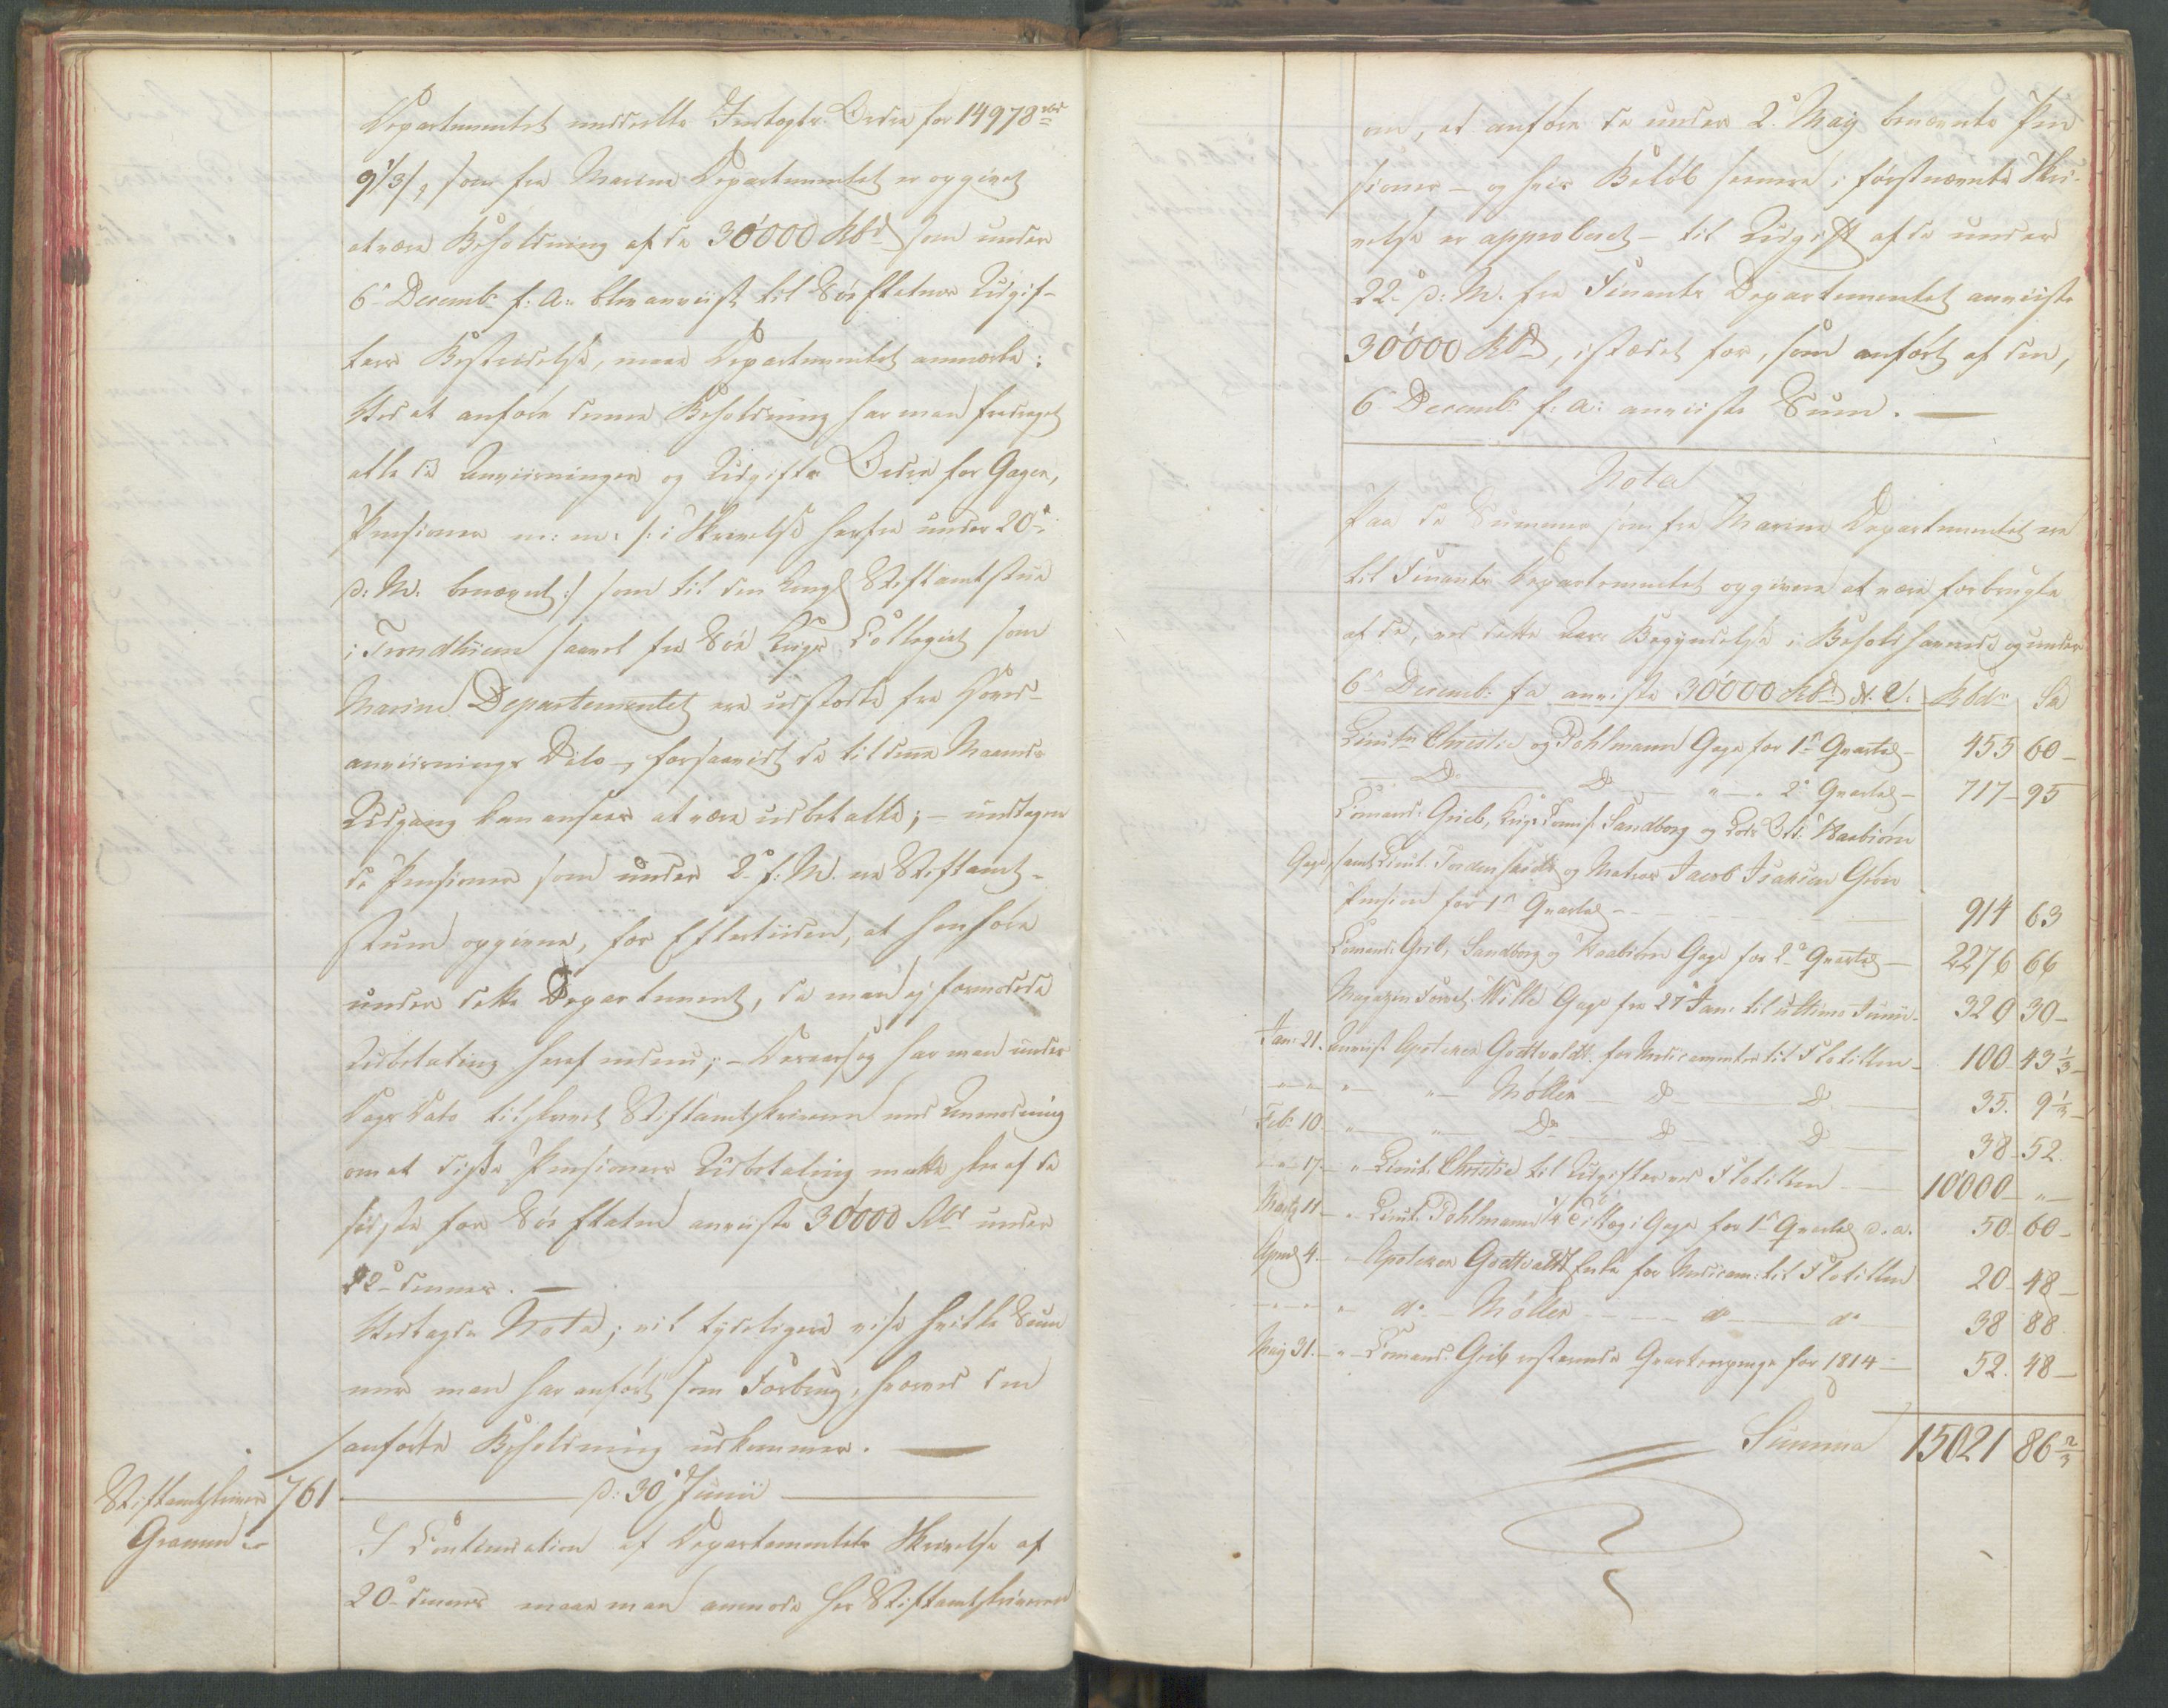 Departementet meddeelte Indtægts Ordre for 14978 rbd
9 1/3 s, som fra Marine Departementet er opgivet
at være Beholdning af de 30'000 Rbd som under
6te Decemb: f: A: blev anviist til Søe Etatens Udgif-
ters Bestridelse, maae Departementet anmærke:
Ved at anføre denne Beholdning har man fradraget
alle de Anviisninger og Udgifts Ordre for Gager,
Pensioner m: m: /: i Skrivelse herfra under 20de
d: M: benævnt :/ som til den Kongl Stiftamtstue
i Trondhiem saavel fra Søe Krigs Collegiet som
Marine Departementet ere udstædte fra Hoved-
anviisnings Dato –, forsaavidt de til denne Maaneds
Udgang kan ansees at være udbetalte; – undtagen
de Pensioner som under 2de f: M. er Stiftamt-
stuen opgivne, for Eftertiiden, at henføre
under dette Departement, da man ej formodede
Udbetaling heraf endnu; – Derover og har man under
Dags Dato tilskrevet Stiftamtskriveren med Anmodning
om at disse Pensioners Udbetaling maatte skee af de
sidste for Søe Etaten anviiste 30'000 Rbd under
22de dennes. —
Vedlagde Nota, vil tydeligere vise hvilke Sum
mer man har anført som Forbrug, hvorved den
anførte Beholdning udkommer. —
Stiftamtskriver 761 — d: 30 Junii —
Gramm
I Continuation af Departementets Skrivelse af
20de dennes maae man anmode Hr Stiftamtskriveren
om, at anføre de under 2de Maij benævnte Pen
sioner – og hvis Beløb senere i førstnævnte Skri-
velse er approberet – til Udgift af de under
22de d: M. fra Finants Departementet anviiste
30'000 Rbd, istædet for, som anført af den,
6te Decemb: f: a: anviiste Sum. —
Nota
Paa de Summer som fra Marine Departementet ere
til Finants Departementet opgivne at være forbrugte
af de, ved dette Aars Begyndelse i Behold havende og under
6te Decemb: fa anviste 30'000 Rbd N. V: Rbdr Sk
Lieutn Christie og Pohlmann Gage for 1ste Qvartal – 455 60 –
— Do — Do — " — " 2de Qvartal – 717 – 95
Comand: Grieb, Krigs Comiss: Sandberg og Raabiörn
Gage, samt Lieut. Tordenskiold og Matros Jacob Isaksen Grøn
Pension for 1ste Qvartal – – 914 63
Comand: Grib, Sandberg og Raabiörn Gage for 2de Qvartal – 2276 66
Magazin Forvalt. Wille Gage fra 27 Jan: til ultimo Junii – 320 30 –
Jan: 21. Anviist Apoteker Godtvaldt for Medicamenter til Flotillen – 100 – 43 1/3 –
— " — " — " — Möller — Do — Do — 35. 9 1/3 –
Feb: 10. " — " — Do — Do — Do — 38 – 52.
— " – 17. – " – Lieut. Christie til Udgifter ved Flotillen — 10'000 – " –
Martz 11 – " – Lieut. Pohlmann 1/4 Tillæg i Gage for 1ste Qvartal d. a. 50 – 60 –
April 4. – " Apoteker Godtvaldt for Medicam: til Flotillen 20 – 48 –
— " — " — do – Möller — do — do 38 88
Maij 31. – " – Comand: Grib resterende Qvarteerpenge for 1814 – 52. 48 –
Summa 15021 86 2/3